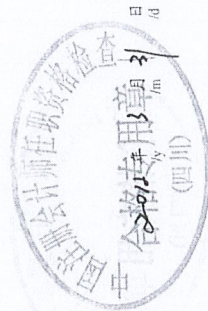 中国注册会计师任职资格检查
合格专用章
(四川)
2012年3月31日
/y /m /d